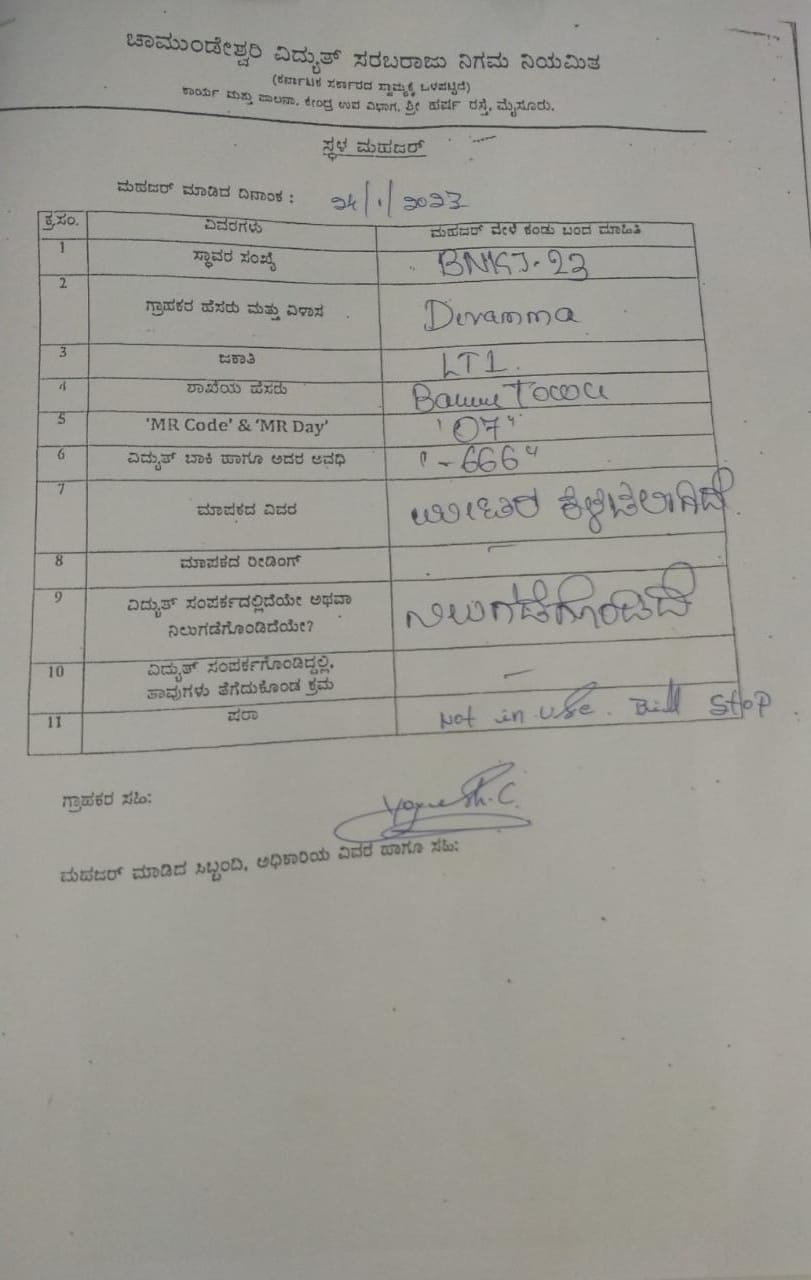 ಚಾಮುಂಡೇಶ್ವರಿ ವಿದ್ಯುತ್ ಸರಬರಾಜು ನಿಗಮ ನಿಯಮಿತ
(ಕರ್ನಾಟಕ ಸರ್ಕಾರದ ಸ್ವಾಮ್ಯಕ್ಕೆ ಒಳಪಟ್ಟಿದೆ)
ಕಾರ್ಯ ಮತ್ತು ಪಾಲನಾ, ಕೇಂದ್ರ ಉಪ ವಿಭಾಗ, ಶ್ರೀ ಹರ್ಷ ರಸ್ತೆ, ಮೈಸೂರು.
ಸ್ಥಳ ಮಹಜರ್
ಮಹಜರ್ ಮಾಡಿದ ದಿನಾಂಕ : 24/1/2023
ಕ್ರ.ಸಂ. ವಿವರಗಳು ಮಹಜರ್ ವೇಳೆ ಕಂಡು ಬಂದ ಮಾಹಿತಿ
1 ಸ್ಥಾವರ ಸಂಖ್ಯೆ
2 ಗ್ರಾಹಕರ ಹೆಸರು ಮತ್ತು ವಿಳಾಸ Devamma
3 ಜಕಾತಿ LT1.
4 ಶಾಖೆಯ ಹೆಸರು
5 'MR Code' & 'MR Day' '07"
6 ವಿದ್ಯುತ್ ಬಾಕಿ ಹಾಗೂ ಅದರ ಅವಧಿ "-666"
7 ಮಾಪಕದ ವಿವರ
8 ಮಾಪಕದ ರೀಡಿಂಗ್ —
9 ವಿದ್ಯುತ್ ಸಂಪರ್ಕದಲ್ಲಿದೆಯೇ ಅಥವಾ
ನಿಲುಗಡೆಗೊಂಡಿದೆಯೇ? ನಿಲುಗಡೆಗೊಂಡಿದೆ
10 ವಿದ್ಯುತ್ ಸಂಪರ್ಕಗೊಂಡಿದ್ದಲ್ಲಿ,
ತಾವುಗಳು ತೆಗೆದುಕೊಂಡ ಕ್ರಮ —
11 ಷರಾ Not in use. Bill Stop
ಗ್ರಾಹಕರ ಸಹಿ: Yogesh.C.
ಮಹಜರ್ ಮಾಡಿದ ಸಿಬ್ಬಂದಿ, ಅಧಿಕಾರಿಯ ವಿವರ ಹಾಗೂ ಸಹಿ: